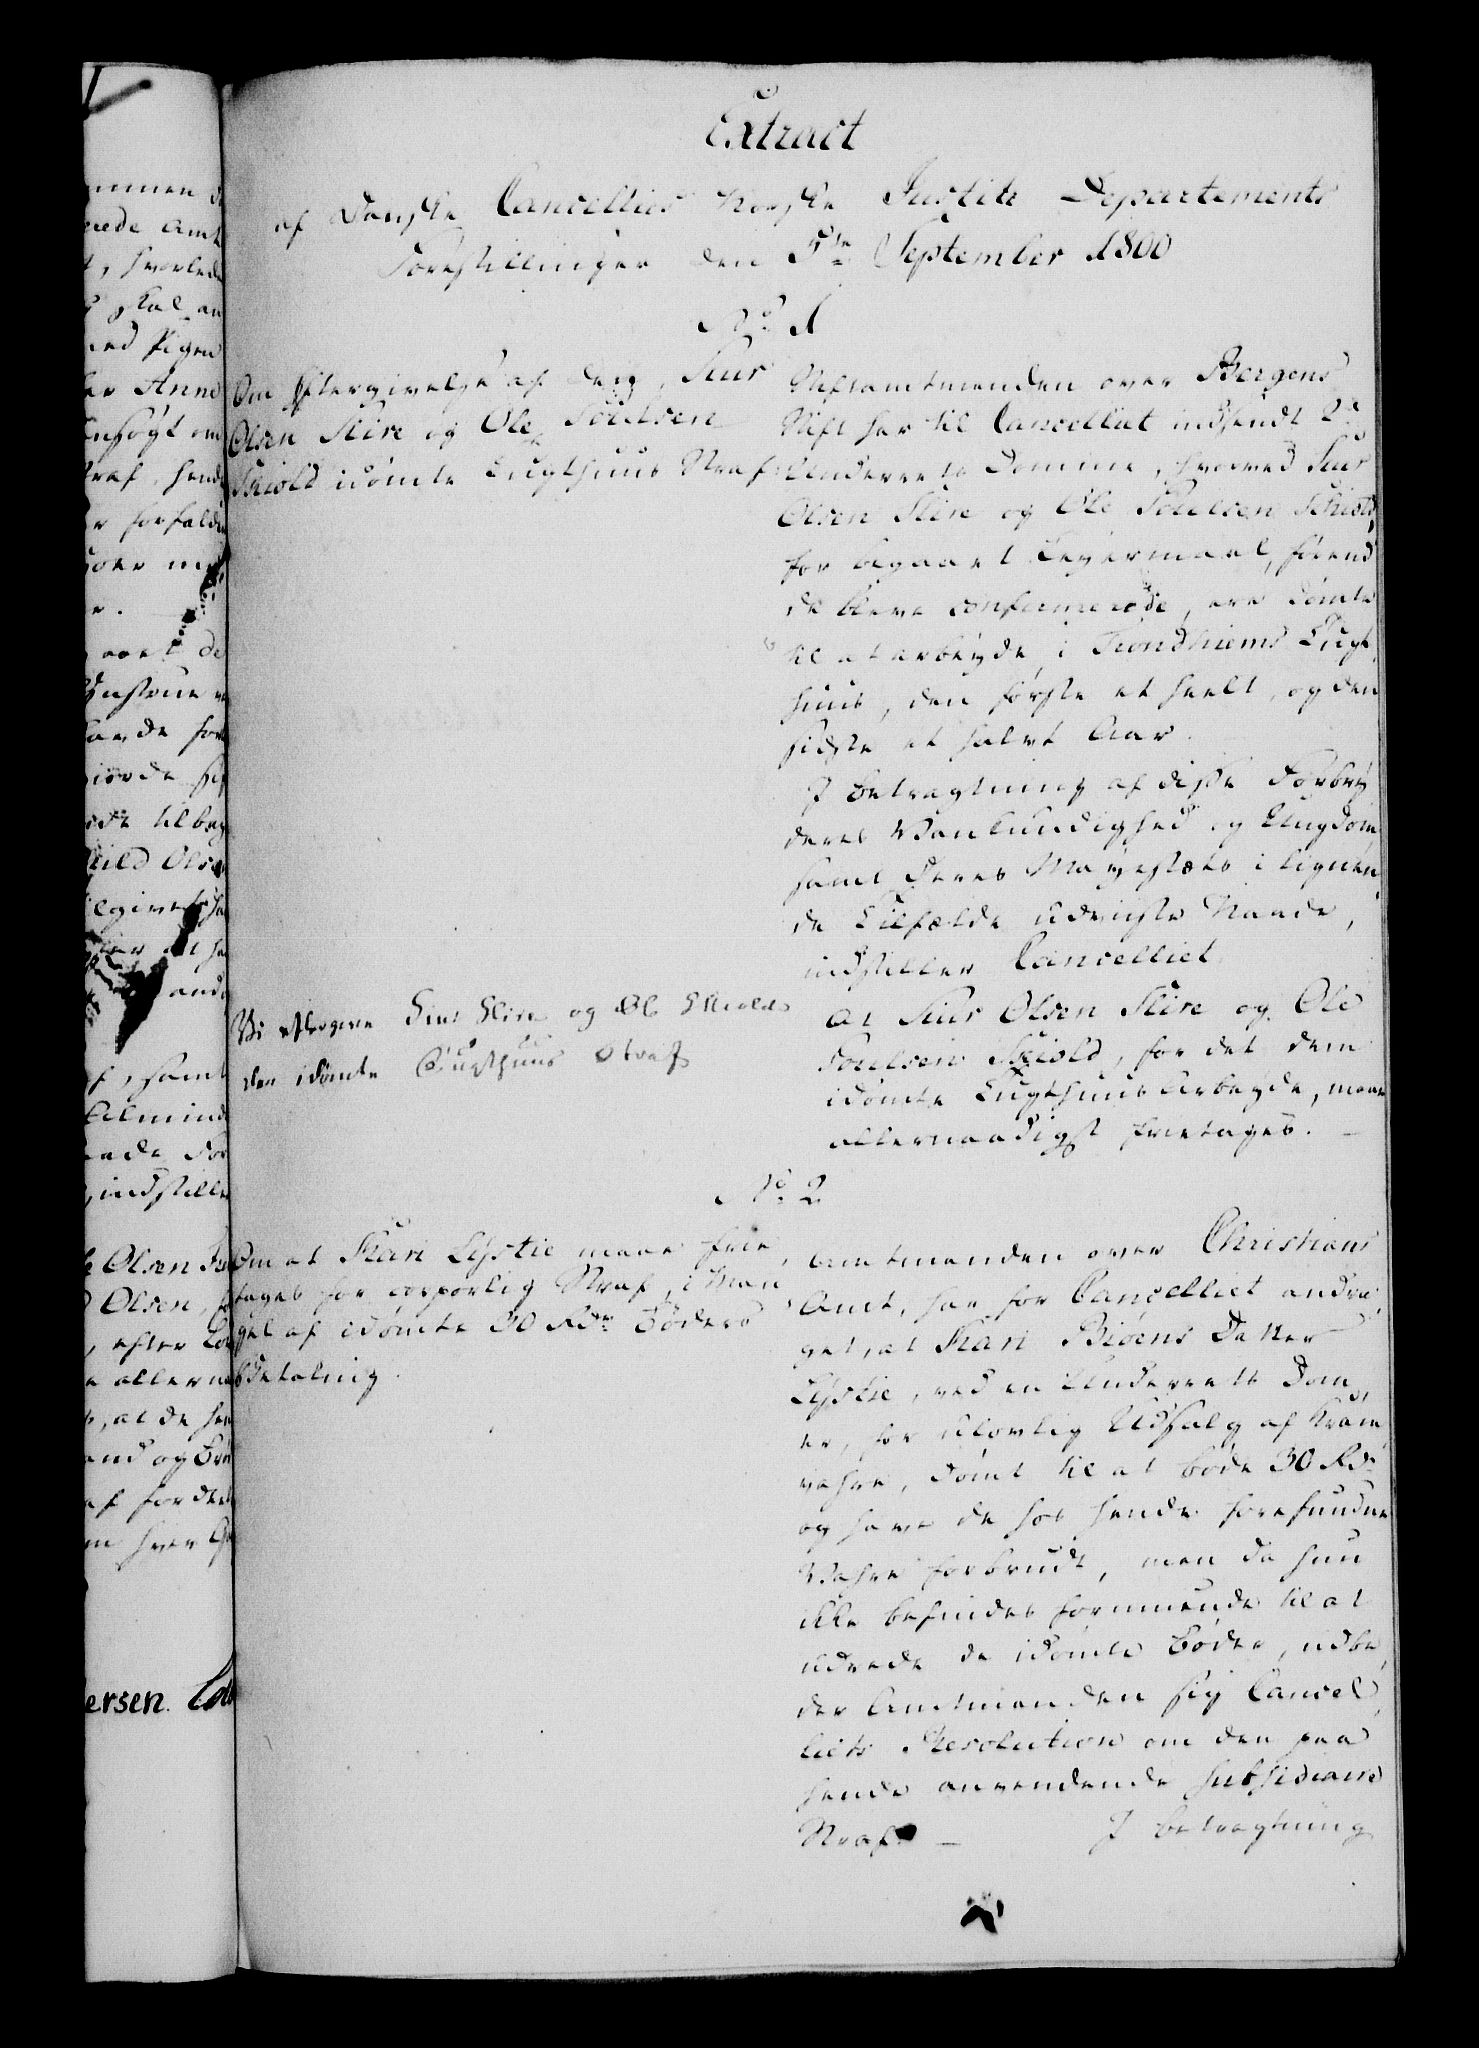 Extract
af Danske Cancellies Norske Justits Departements
Forestillinger den 5te September 1800
No. 1
Om Eftergivelse af den, Siur
Olsen Slire og Ole Poulsen
Skiold idømte Tugthuus Straf.
Stiftamtmanden over Bergens
Stift har til Cancelliet indsendt 2de
Underrets Domme, hvorved Siur
Olsen Slire og Ole Poulsen Skiold,
for begaaet Leyermaal, førend
de bleve confirmerede, ere dømte
til at arbeyde i Trondhiems Tugt
huus, den første et heelt, og den
sidste et halvt Aar.
I Betragtning af disse Forbry
deres Vankundighed og Ungdom
samt Deres Mayestæts i lignen
de Tilfælde udviiste Naade,
indstiller Cancelliet
At Siur Olsen Slire og Ole
Poulsen Skiold, for det dem
idømte Tugthuus Arbeyde, maae
allernaadigst frietages.
Vi eftergive Siur Slire og Ole Skiold
den idømte Tugthuus Straf
No. 2
Om at Kari Lystie maae frie
tages for corporlig Straf, i Man
gel af idømte 30 Rdr Bøders
Betaling.
Amtmanden over Christians
Amt, har for Cancelliet andra
get, at Kari Biøens Datter
Lystie, ved en Underrets Dom
er, for ulovlig Udsalg af Kram
vahre, dømt til at bøde 30 Rdr
og have de hos hende forefundne
Vahre forbrudt, men da hun
ikke befindes formuende til at
udrede de idømte Bøder, udbe
der Amtmanden sig Cancel
liets Resolution om den paa
hende anvendende subsidiaire
Straf. — I betragtning